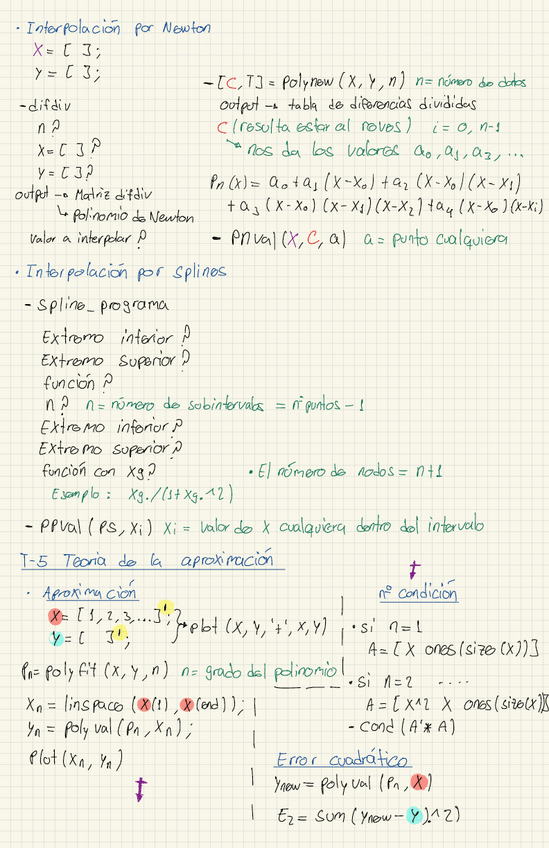 · Interpolación por Newton
X = [ ];
Y = [ ];
- difdiv
n?
X = [ ]?
Y = [ ]?
output → Matriz difdiv
↳ polinomio de Newton
valor a interpolar?
- [C,T] = polynew (X, Y, n) n = número de datos
output → tabla de diferencias divididas
C (resulta estar al reves) i = 0, n-1
↳ nos da los valores a₀, a₁, a₃, ...
Pn(x) = a₀ + a₁ (X-X₀) + a₂ (X-X₀)(X-X₁)
+ a₃ (X-X₀)(X-X₁)(X-X₂) + a₄ (X-X₀)(X-Xi)
- PNval (X, C, a) a = punto cualquiera
· Interpolación por splines
- spline_programa
Extremo inferior?
Extremo superior?
función?
n? n = número de subintervalos = nº puntos - 1
Extremo inferior?
Extremo superior?
función con xg? · El número de nodos = n+1
Esemplo: Xg./(1+Xg.^2)
- PPval (PS, Xi) Xi = valor de X cualquiera dentro del intervalo
T-5 Teoria de la aproximación
· Aproximación
X = [1, 2, 3, ...]';
Y = [ ]';
→ plot (X, Y, '+', X, Y)
Pn = polyfit (X, Y, n) n = grado del polinomio
Xn = linspace (X(1), X(end));
Yn = polyval (Pn, Xn);
Plot (Xn, Yn)
nº condición
· si n=1
A = [X ones(size(X))]
· si n=2 ....
A = [X^2 X ones(size(X))]
- cond (A'*A)
Error cuadrático
Ynew = polyval (Pn, X)
E2 = sum (Ynew - Y).^2)